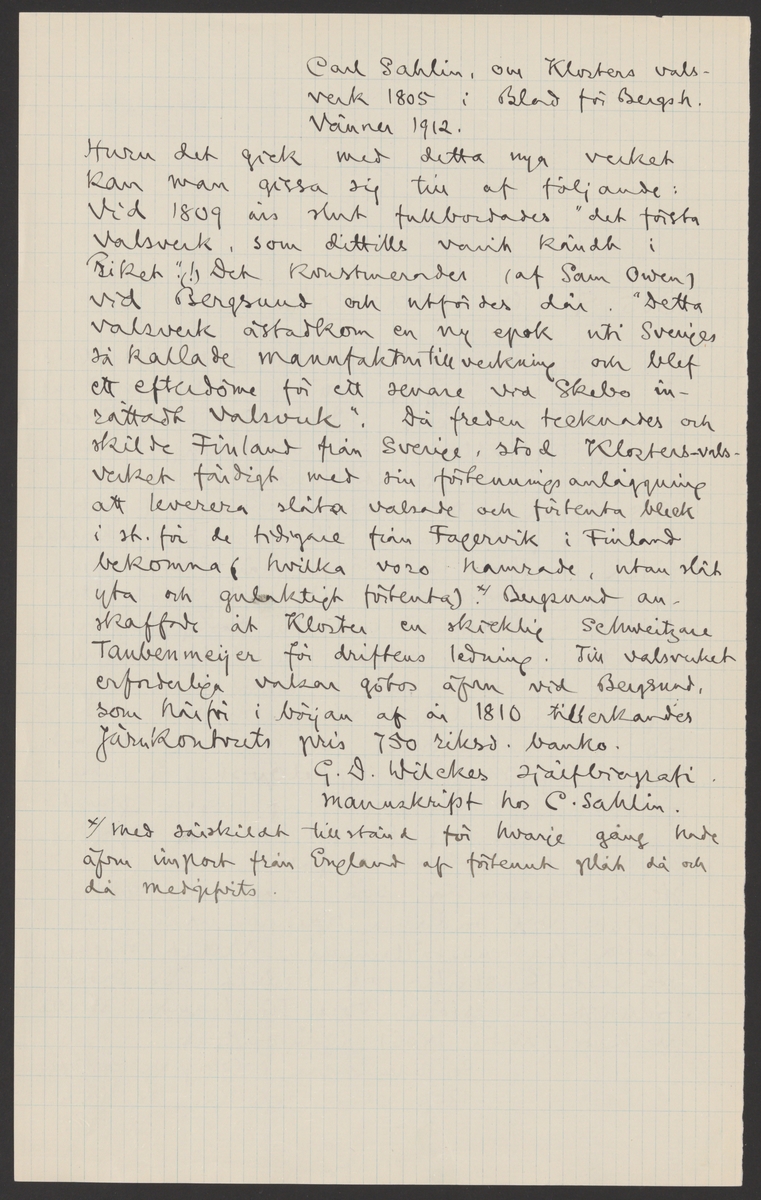 Carl Sahlin, om Klosters vals-
verk 1805 i Blad för Bergsh.
Vänner 1912.
Huru det gick med detta nya verket
kan man gissa sig till af följande:
Vid 1809 års slut fullbordades "det första
valsverk, som dittills varit kändt i
Riket".(!) Det konstruerades (af Sam Owen)
vid Bergsund och utfördes där. "Detta
valsverk åstadkom en ny epok uti Sveriges
så kallade manufakturtillverkning och blef
ett efterdöme för ett senare vid Skebo in-
rättadt valsverk". Då freden tecknades och
skilde Finland från Sverige, stod Klosters-vals-
verket färdigt med sin förtennings anläggning
att leverera släta valsade och förtenta bleck
i st. för de tidigare från Fagervik i Finland
bekomna (hvilka voro hamrade, utan slät
yta och gulaktigt förtenta).x/ Bergsund an-
skaffade åt Kloster en skicklig Schweitzare
Taubenmeijer för driftens ledning. Till valsverket
erforderliga valsar götos äfven vid Bergsund,
som härför i början af år 1810 tillerkändes
Järnkontorets pris 750 riksd. banko.
G. D. Wilckes själfbiografi.
Manuskript hos C. Sahlin.
x/ Med särskildt tillstånd för hvarje gång hade
äfven import från England af förtennt plåt då och
då medgifvits.